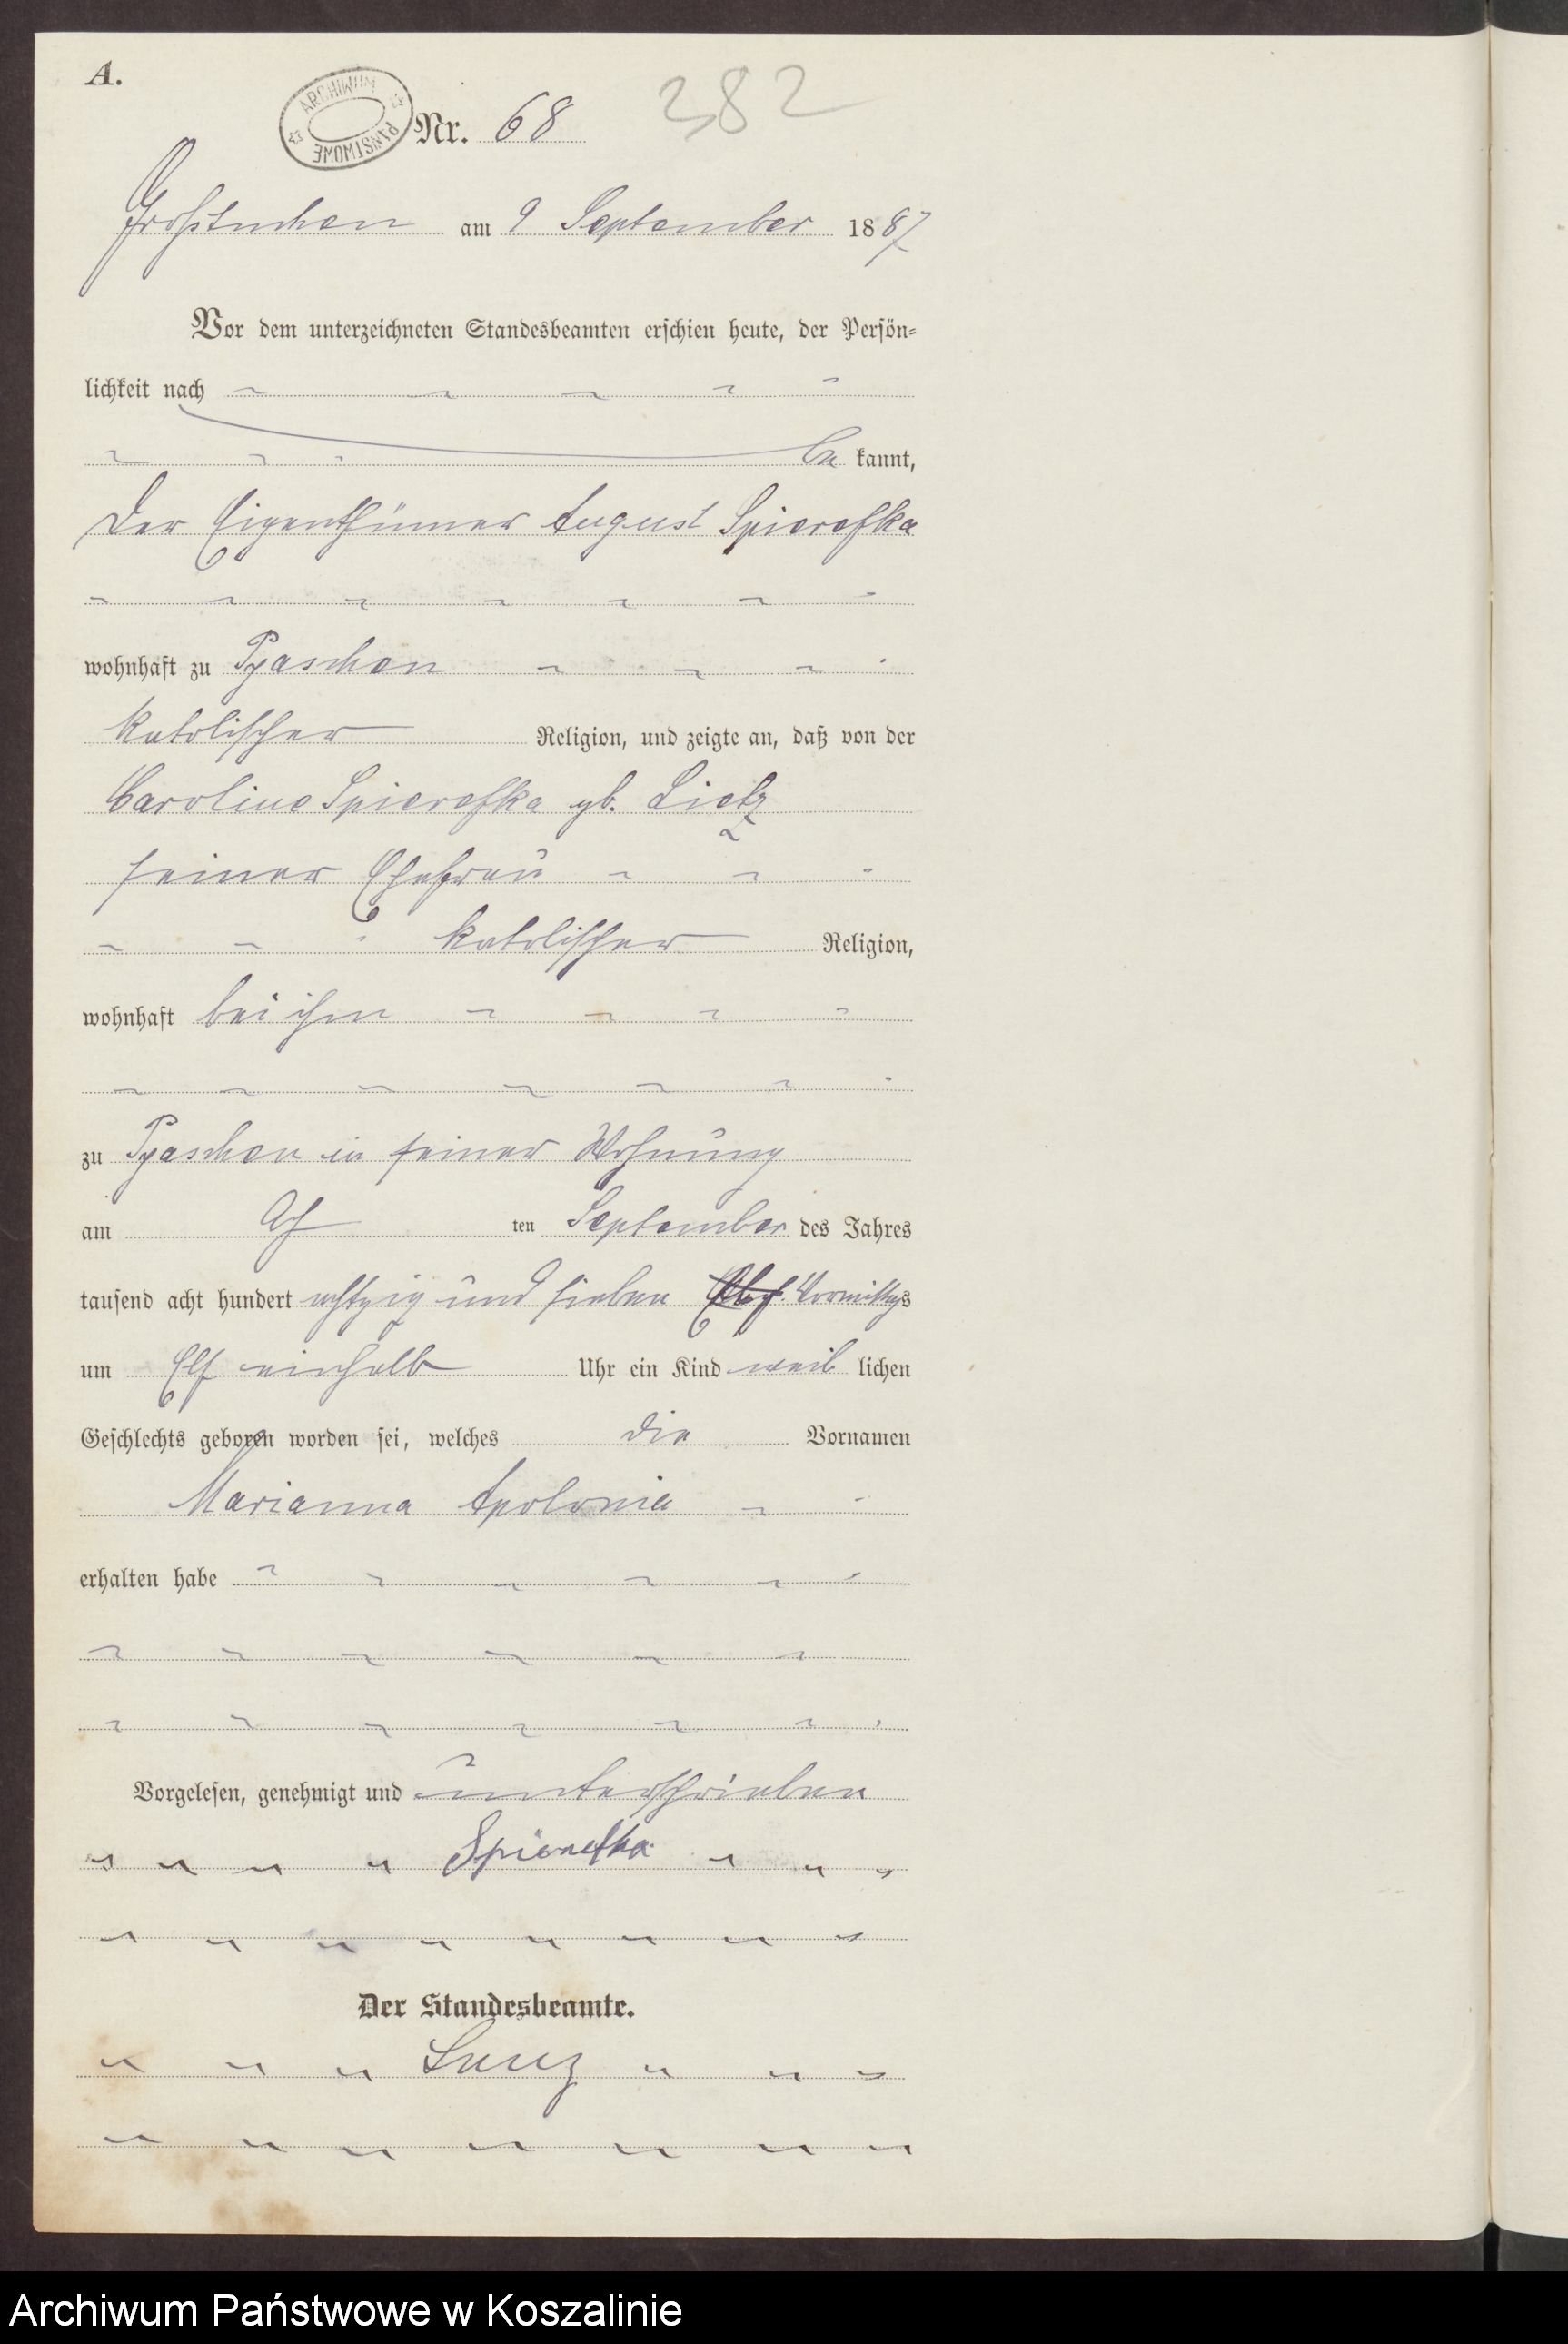 A.
ARCHIWUM PAŃSTWOWE
Nr. 68
382
Großtuchen am 9 September 1887
Vor dem unterzeichneten Standesbeamten erschien heute, der Persön-
lichkeit nach
be kannt,
der Eigenthümer August Spierefka
wohnhaft zu Pyaschen
katolischer Religion, und zeigte an, daß von der
Caroline Spierefka gb. Lietz
seiner Ehefrau
katolischer Religion,
wohnhaft bei ihm
zu Pyaschen in seiner Wohnung
am Ach ten September des Jahres
tausend acht hundert achtzig und sieben Vormittags
um Elf einhalb Uhr ein Kind weib lichen
Geschlechts geboren worden sei, welches die Vornamen
Marianna Apolonia
erhalten habe
Vorgelesen, genehmigt und unterschrieben
Spierefka
Der Standesbeamte.
Archiwum Państwowe w Koszalinie